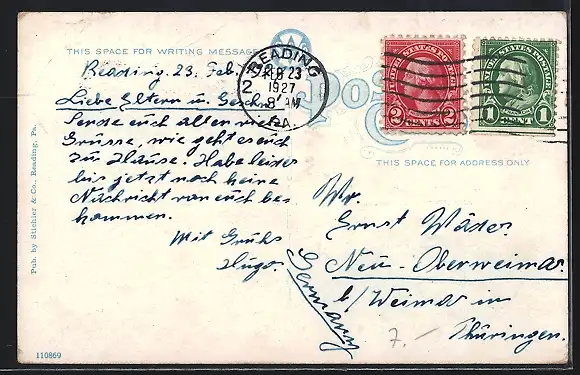 THIS SPACE FOR WRITING MESSAGE
Reading. 23. Feb.
READING
2
FEB 23
1927
8 AM
PA.
UNITED STATES POSTAGE
2 CENTS 2
UNITED STATES POSTAGE
1 CENT 1
Post
THIS SPACE FOR ADDRESS ONLY
Liebe Eltern u. Geschw.
Sende euch allen viele
Grüsse, wie geht es euch
zu Hause. Habe leider
bis jetzt noch keine
Nachricht von euch be-
kommen.
Mit Gruhs
Hugo.
Ernst
Neu-Oberweimar
b/Weimar in
Thüringen.
Germany
7.-
Pub. by Stichler & Co., Reading, Pa.
110869